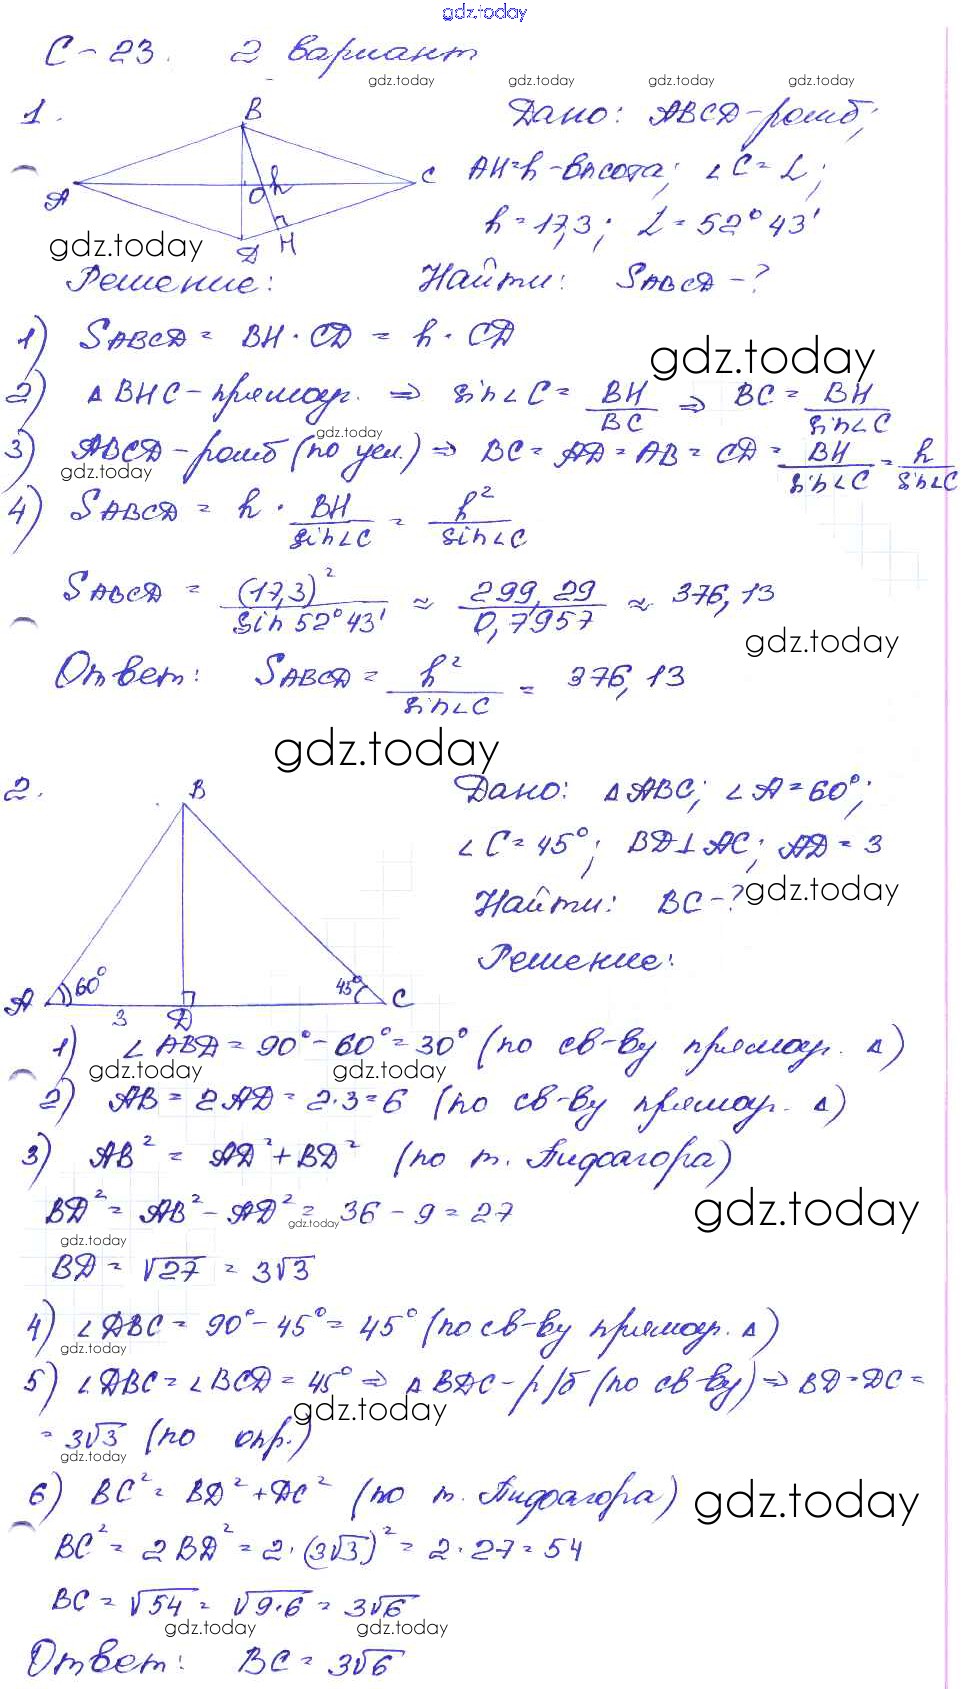 gdz.today
С-23. 2 вариант
gdz.today gdz.today gdz.today gdz.today
1.
B
A
C
O
h
D
H
Дано: ABCD-ромб;
AH=h-высота; ∠C=L;
h=17,3; L=52°43'
gdz.today
Решение: Найти: SABCD-?
1) SABCD = BH·CD = h·CD
gdz.today
2) ΔBHC-прямоуг. ⇒ sin∠C = BH/BC ⇒ BC = BH/sin∠C
gdz.today
3) ABCD-ромб (по усл.) ⇒ BC=AD=AB=CD= BH/sin∠C = h/sin∠C
gdz.today
4) SABCD = h · BH/sin∠C = h²/sin∠C
SABCD = (17,3)²/sin 52°43' ≈ 299,29/0,7957 ≈ 376,13
gdz.today
Ответ: SABCD = h²/sin∠C = 376,13
gdz.today
2.
B
60°
45°
A
3
D
C
Дано: ΔABC; ∠A=60°;
∠C=45°; BD⊥AC; AD=3
Найти: BC-?
gdz.today
Решение:
1) ∠ABD=90°-60°=30° (по св-ву прямоуг. Δ)
gdz.today gdz.today
2) AB=2AD=2·3=6 (по св-ву прямоуг. Δ)
3) AB² = AD²+BD² (по т. Пифагора)
BD²=AB²-AD²=36-9=27
gdz.today gdz.today
gdz.today
BD=√27=3√3
4) ∠DBC=90°-45°=45° (по св-ву прямоуг. Δ)
gdz.today
5) ∠DBC=∠BCD=45° ⇒ ΔBDC-р/б (по св-ву) ⇒ BD=DC=
gdz.today
=3√3 (по опр.)
gdz.today
6) BC²=BD²+DC² (по т. Пифагора)
gdz.today
BC²=2BD²=2·(3√3)²=2·27=54
BC=√54=√9·6=3√6
gdz.today gdz.today
Ответ: BC=3√6